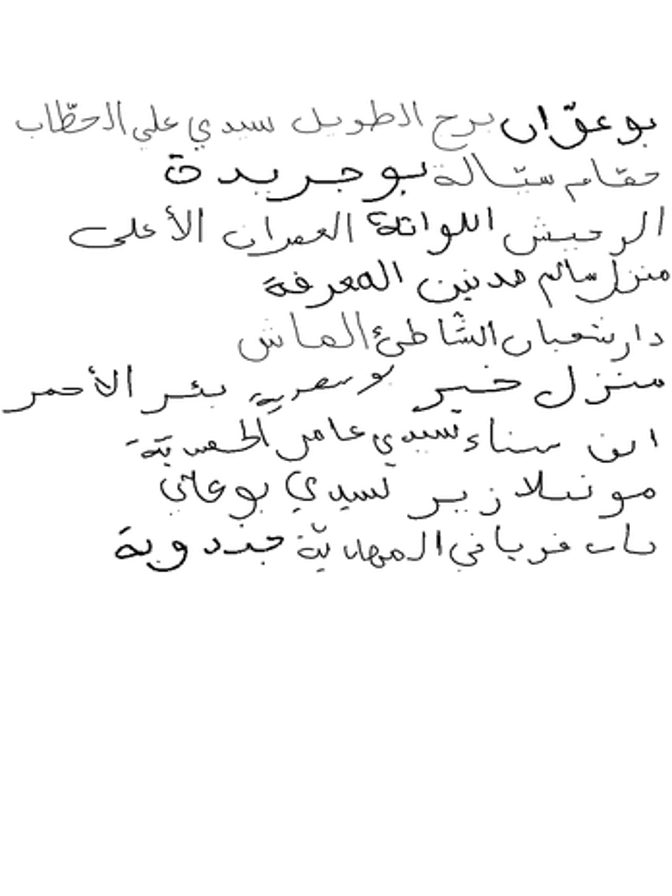 بوعقّان برج الطويل سيدي علي الحطّاب
حمّام سيّالة بوجريدة
الرحيش اللواتة العمران الأعلى
منزل سالم مدنين المعرفة
دار شعبان الشّاطئ الماش
منزل خير بئر الأحمر
ابن سناء سيدي عامر
مونبلازير سيدي بوعلي
باب غرباني المهديّة جندوبة